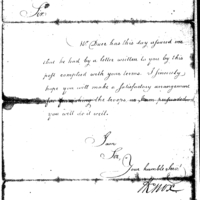 Sir
Mr Duer has this day assured me
that he had by a letter written to you by this
post complied with your terms. I sincerely
hope you will make a satisfactory arrangement
for
you will do it well.
I am
Sir
Your humble Servt
HKnox